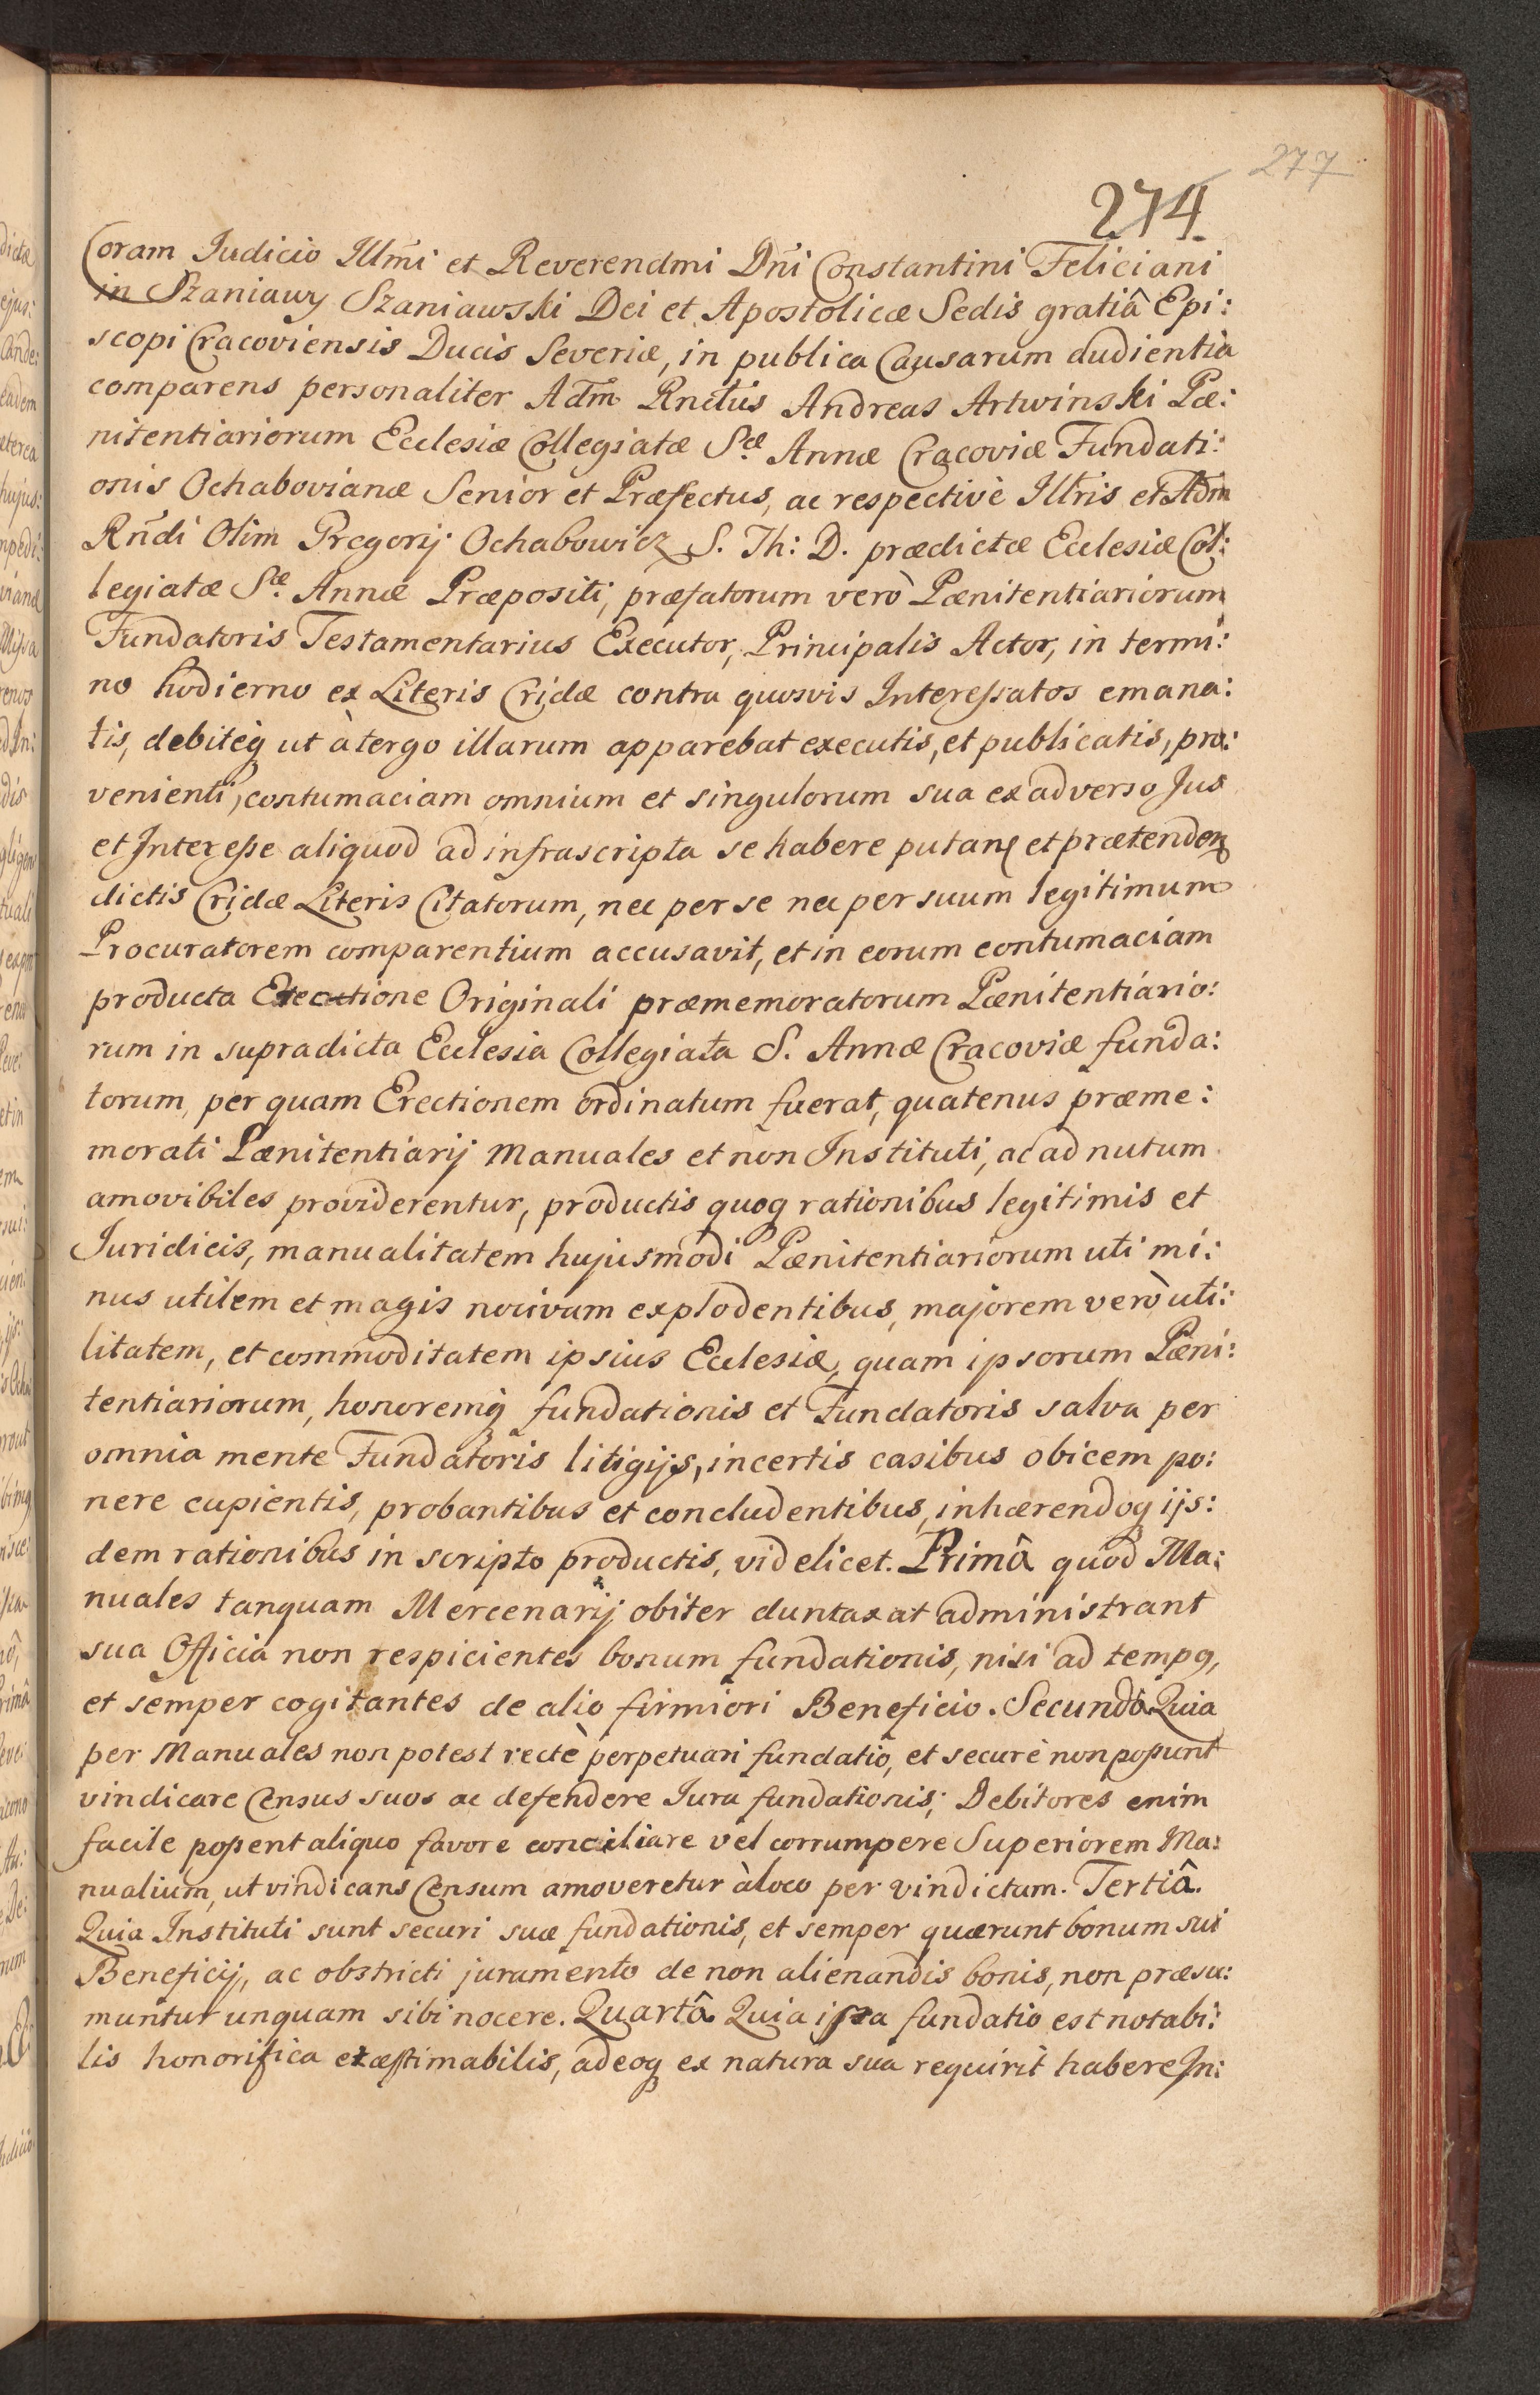 277
274
Coram Iudicio Illm̄i et Reverendmi Dn̄i Constantini Feliciani
in Szaniawy Szaniawski Dei et Apostolicæ Sedis gratiâ Epi:
scopi Cracoviensis Ducis Severiæ, in publica Causarum audientia
comparens personaliter Adm̄ Rnd̄us Andreas Artwinski Pæ:
nitentiariorum Ecclesiæ Collegiatæ S.æ Annæ Cracoviæ Fundati:
onis Ochabovianæ Senior et Præfectus, ac respectivè Illtris et Adm̄
Rn̄di Olim Gregorij Ochabowicz S. Th: D. prædictæ Ecclesiæ Col:
legiatæ S.æ Annæ Præpositi, præfatorum verò Pænitentiariorum
Fundatoris Testamentarius Executor, Principalis Actor, in termi:
no hodierno ex Literis Cridæ contra quosvis Interessatos emana:
tis, debiteq ut à tergo illarum apparebat executis, et publicatis, pro:
venienti, contumaciam omnium et singulorum sua ex adverso Jus
et Interesse aliquod ad infrascripta se habere putanꝭ et prætendenꝭ
dictis Cridæ Literis Citatorum, nec per se nec per suum legitimum
Procuratorem comparentium accusavit, et in eorum contumaciam
producta Erectione Originali præmemoratorum Pænitentiario:
rum in supradicta Ecclesia Collegiata S. Annæ Cracoviæ funda:
torum, per quam Erectionem ordinatum fuerat, quatenus præme:
morati Pænitentiarij Manuales et non Instituti, ac ad nutum
amovibiles providerentur, productis quoq rationibus legitimis et
Iuridicis, manualitatem hujusmodi Pænitentiariorum uti mi:
nus utilem et magis nocivam explodentibus, majorem verò uti:
litatem, et commoditatem ipsius Ecclesiæ, quam ipsorum Pæni:
tentiariorum, honoremq fundationis et Fundatoris salva per
omnia mente Fundatoris litigijs, incertis casibus obicem po:
nere cupientis, probantibus et concludentibus, inhærendoq ijs:
dem rationibus in scripto productis, videlicet. Primâ quod Ma:
nuales tanquam Mercenarij obiter duntaxat administrant
sua Officia non respicientes bonum fundationis, nisi ad tempꝯ,
et semper cogitantes de alio firmiori Beneficio. Secundâ Quia
per Manuales non potest rectè perpetuari fundatio, et securè non possunt
vindicare Census suos ac defendere Iura fundationis; Debitores enim
facile possent aliquo favore conciliare vel corrumpere Superiorem Ma:
nualium, ut vindicans Censum amoveretur à loco per vindictam. Tertiâ.
Quia Instituti sunt securi suæ fundationis, et semper quærunt bonum sui
Beneficij, ac obstricti juramento de non alienandis bonis, non præsu:
muntur unquam sibi nocere. Quartâ Quia ipsa fundatio est notabi:
lis honorifica et æstimabilis, adeoq ex natura sua requirit habere In: